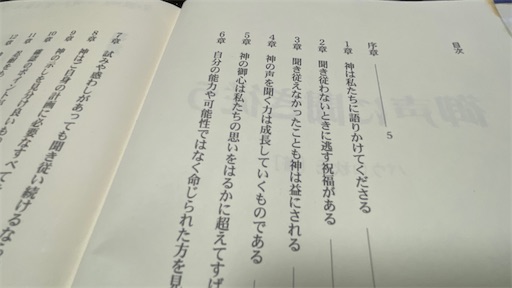 目次
序章 5
1章 神は私たちに語りかけてくださる
2章 聞き従わないときに逃す祝福がある
3章 聞き従えなかったことも神は益にされる
4章 神の声を聞く力は成長していくものである
5章 神の御心は私たちの思いをはるかに超えてすば
6章 自分の能力や可能性ではなく命じられた方を見
7章 試みや惑わしがあっても聞き従い続けるなら
8章 神はご自身の計画に必要なすべて
9章 神の示しを見分け
10章
11章
12章